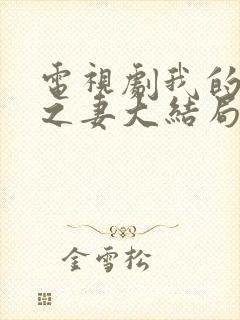 電視劇我的
之妻大結局
金雪松